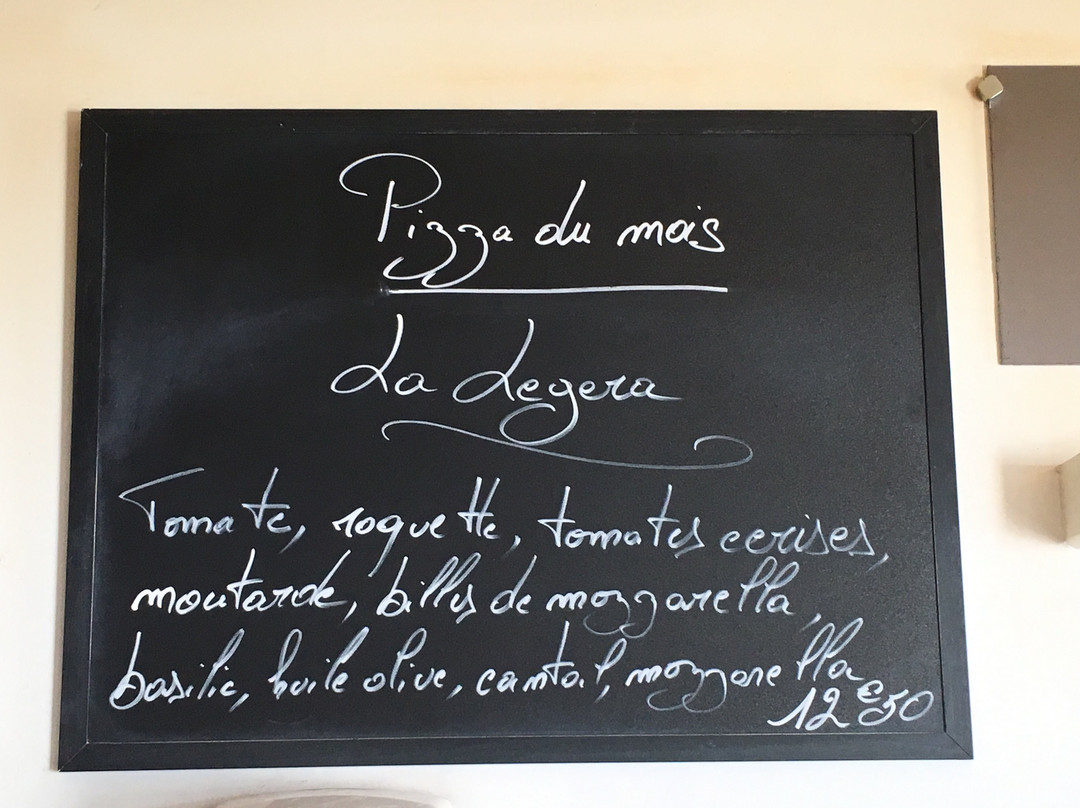 Pizza du mois
La Legera
Tomate, roquette, tomates cerises,
moutarde, billes de mozzarella,
basilic, huile olive, cantal, mozzarella
12€50